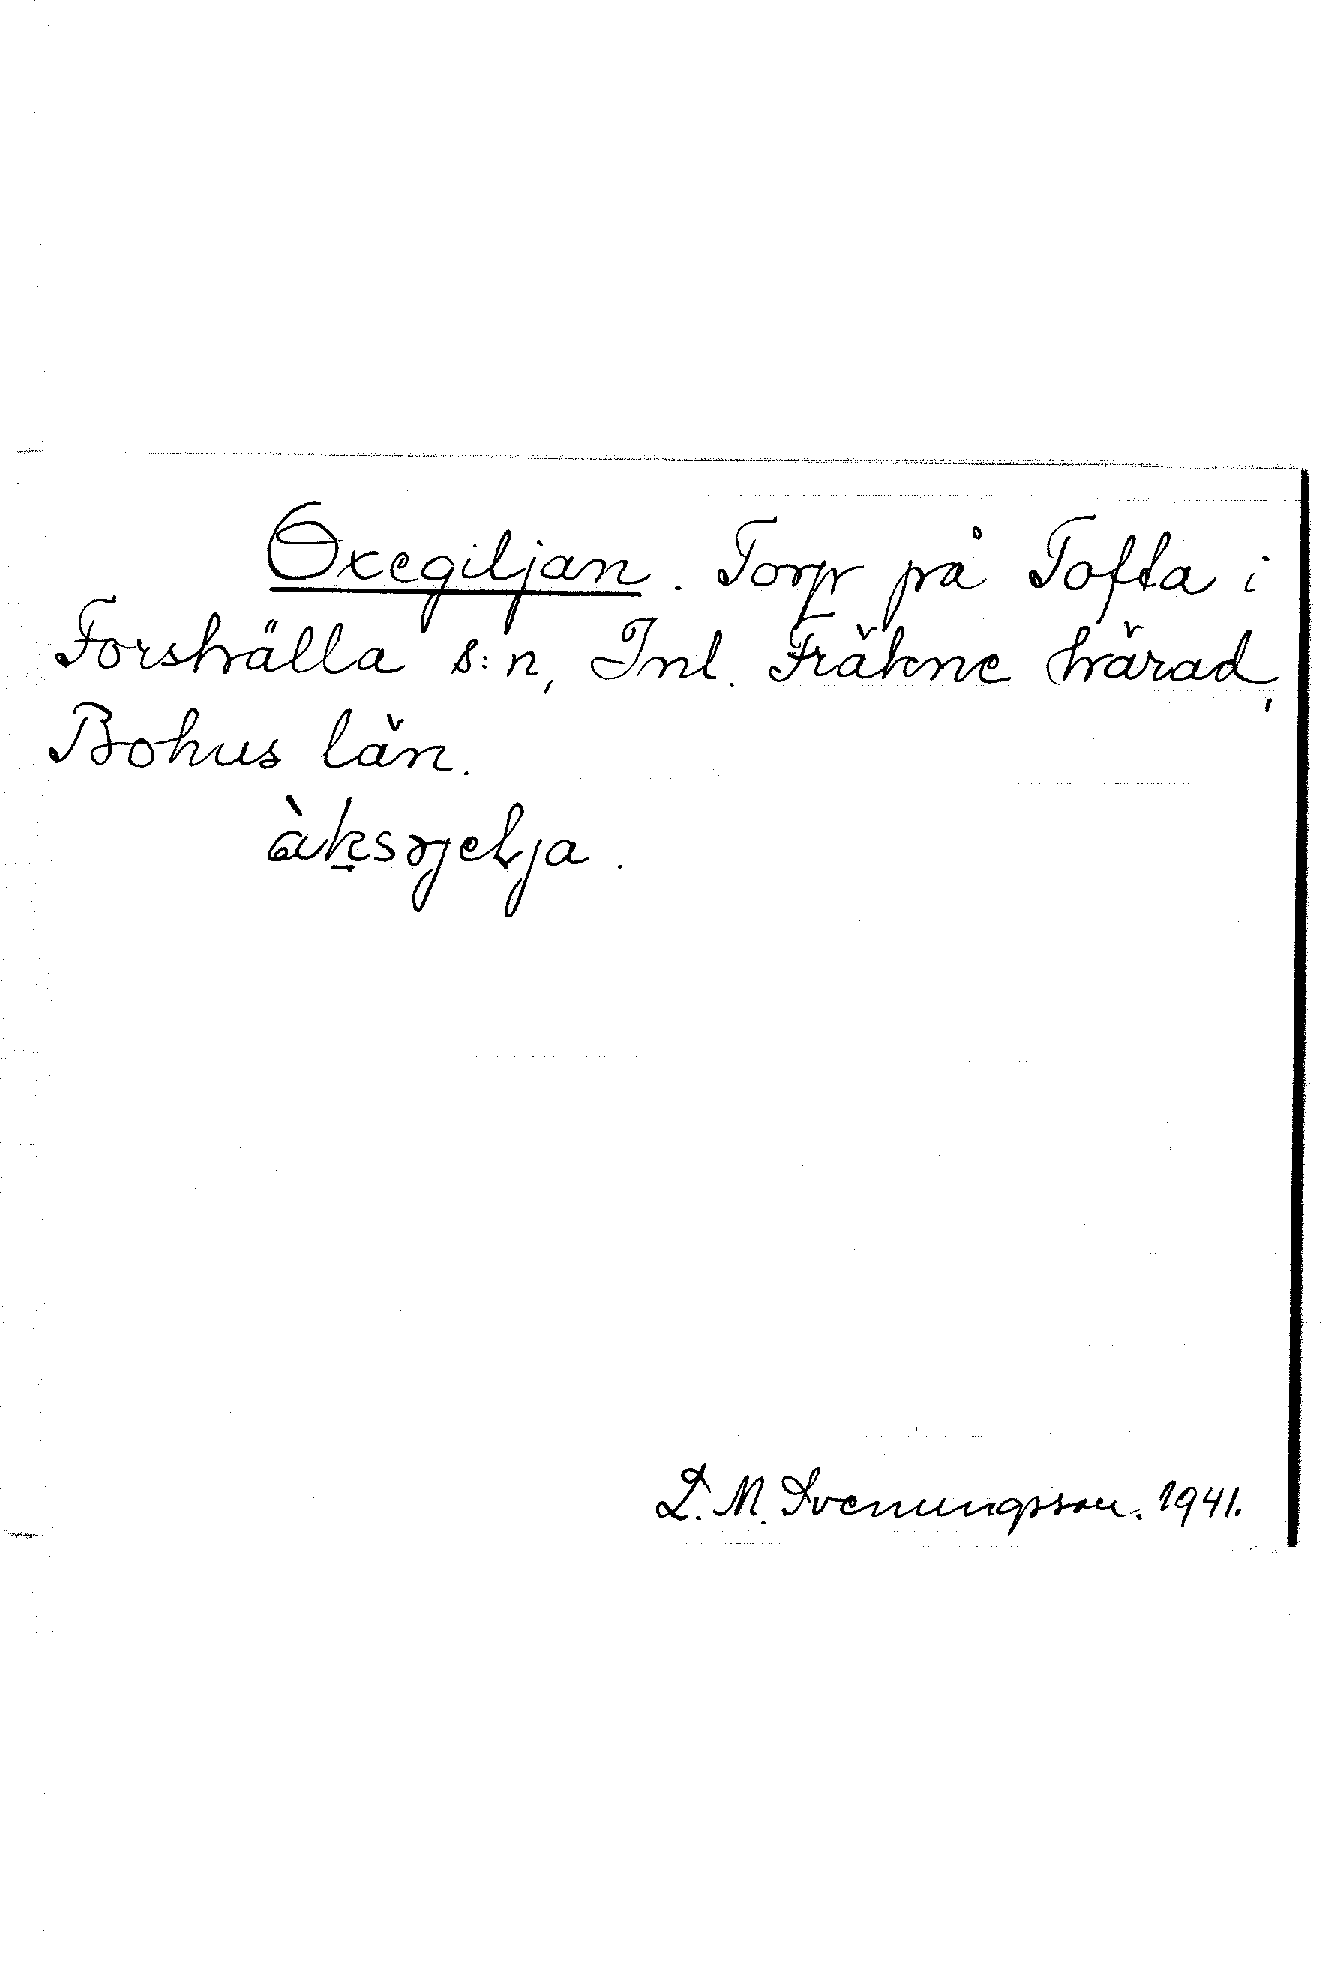 Oxegiljan. Torp på Tofta i
Forshälla s:n, Inl. Fräkne härad,
Bohus län.
àksəjelja.
L. M. Svenungsson. 1941.